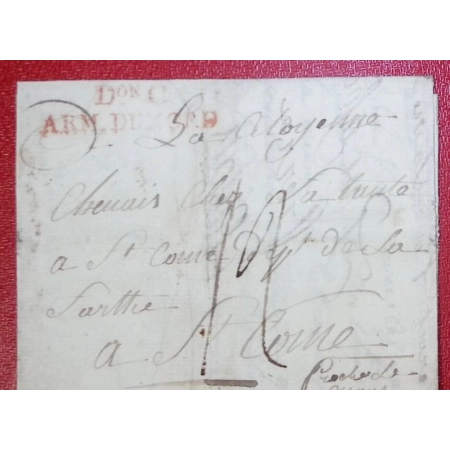 Don C
ARM. DU NRD
La Citoyenne
Chenais chez Sa tante
a St Come Dpt de La
Sarthe
a St Come
Proche Le